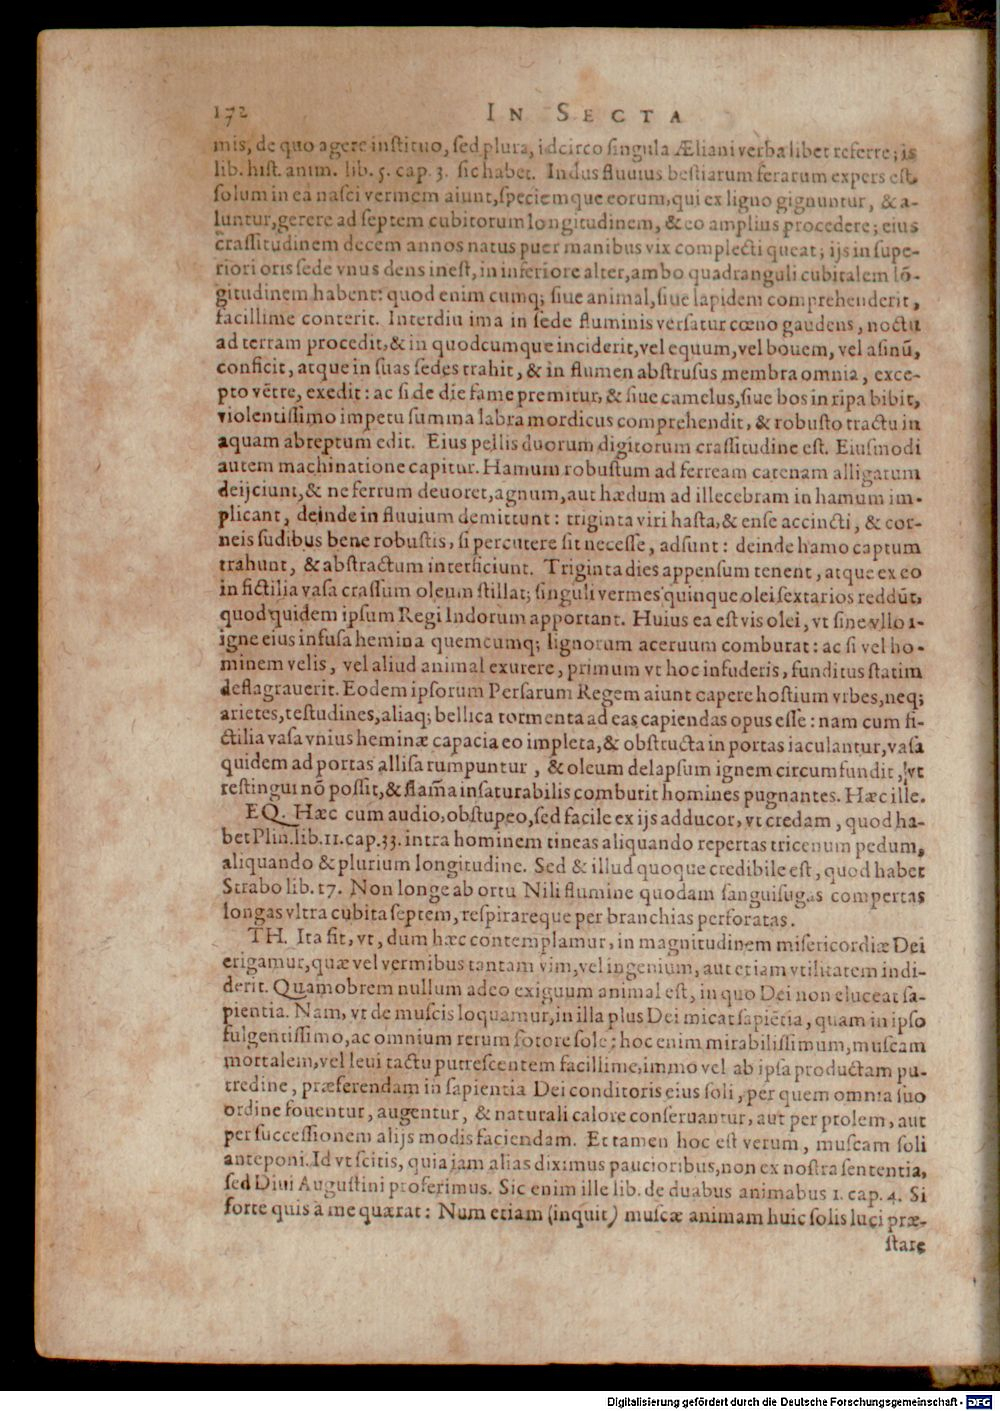 172 IN SECTA
mis, de quo agere instituo, sed plura, idcirco singula Æliani verba libet referre; is
lib. hist. anim. lib. 5. cap. 3. sic habet. Indus fluuius bestiarum ferarum expers est.
solum in ea nasci vermem aiunt, speciemque eorum, qui ex ligno gignuntur, & a-
luntur, gerere ad septem cubitorum longitudinem, & eo amplius procedere; eius
crassitudinem decem annos natus puer manibus vix complecti queat; ijs in supe-
riori oris sede vnus dens inest, in inferiore alter, ambo quadranguli cubitalem lõ-
gitudinem habent: quod enim cumq; siue animal, siue lapidem comprehenderit,
facillime conterit. Interdiu ima in sede fluminis versatur cœno gaudens, noctu
ad terram procedit, & in quodcumque inciderit, vel equum, vel bouem, vel asinũ,
conficit, atque in suas sedes trahit, & in flumen abstrusus membra omnia, exce-
pto vẽtre, exedit: ac si de die fame premitur, & siue camelus, siue bos in ripa bibit,
violentissimo impetu summa labra mordicus comprehendit, & robusto tractu in
aquam abreptum edit. Eius pellis duorum digitorum crassitudine est. Eiusmodi
autem machinatione capitur. Hamum robustum ad ferream catenam alligatum
deijciunt, & ne ferrum deuoret, agnum, aut hædum ad illecebram in hamum im-
plicant, deinde in fluuium demittunt: triginta viri hasta, & ense accincti, & cor-
neis sudibus bene robustis, si percutere sit necesse, adsunt: deinde hamo captum
trahunt, & abstractum interficiunt. Triginta dies appensum tenent, atque ex eo
in fictilia vasa crassum oleum stillat; singuli vermes quinque olei sextarios reddũt,
quod quidem ipsum Regi Indorum apportant. Huius ea est vis olei, vt sine vllo i-
igne eius infusa hemina quemcumq; lignorum aceruum comburat: ac si vel ho-
minem velis, vel aliud animal exurere, primum vt hoc infuderis, funditus statim
deflagrauerit. Eodem ipsorum Persarum Regem aiunt capere hostium vrbes, neq;
arietes, testudines, aliaq; bellica tormenta ad eas capiendas opus esse: nam cum fi-
ctilia vasa vnius heminæ capacia eo impleta, & obstructa in portas iaculantur, vasa
quidem ad portas allisa rumpuntur, & oleum delapsum ignem circumfundit, vt
restingui nõ possit, & flam̃a insaturabilis comburit homines pugnantes. Hæc ille.
EQ. Hæc cum audio, obstupeo, sed facile ex ijs adducor, vt credam, quod ha-
bet Plin. lib. 11. cap. 33. intra hominem tineas aliquando repertas tricenum pedum,
aliquando & plurium longitudine. Sed & illud quoque credibile est, quod habet
Strabo lib. 17. Non longe ab ortu Nili flumine quodam sanguisugas compertas
longas vltra cubita septem, respirareque per branchias perforatas.
TH. Ita fit, vt, dum hæc contemplamur, in magnitudinem misericordiæ Dei
erigamur, quæ vel vermibus tantam vim, vel ingenium, aut etiam vtilitatem indi-
derit. Quamobrem nullum adeo exiguum animal est, in quo Dei non eluceat sa-
pientia. Nam, vt de muscis loquamur, in illa plus Dei micat sapiẽtia, quam in ipso
fulgentissimo, ac omnium rerum fotore sole; hoc enim mirabilissimum, muscam
mortalem, vel leui tactu putrescentem facillime, immo vel ab ipsa productam pu-
tredine, præferendam in sapientia Dei conditoris eius soli, per quem omnia suo
ordine fouentur, augentur, & naturali calore conseruantur, aut per prolem, aut
per successionem alijs modis faciendam. Et tamen hoc est verum, muscam soli
anteponi. Id vt scitis, quia iam alias diximus paucioribus, non ex nostra sententia,
sed Diui Augustini proferimus. Sic enim ille lib. de duabus animabus 1. cap. 4. Si
forte quis à me quærat: Num etiam (inquit) muscæ animam huic solis luci præ-
stare
Digitalisierung gefördert durch die Deutsche Forschungsgemeinschaft - DFG